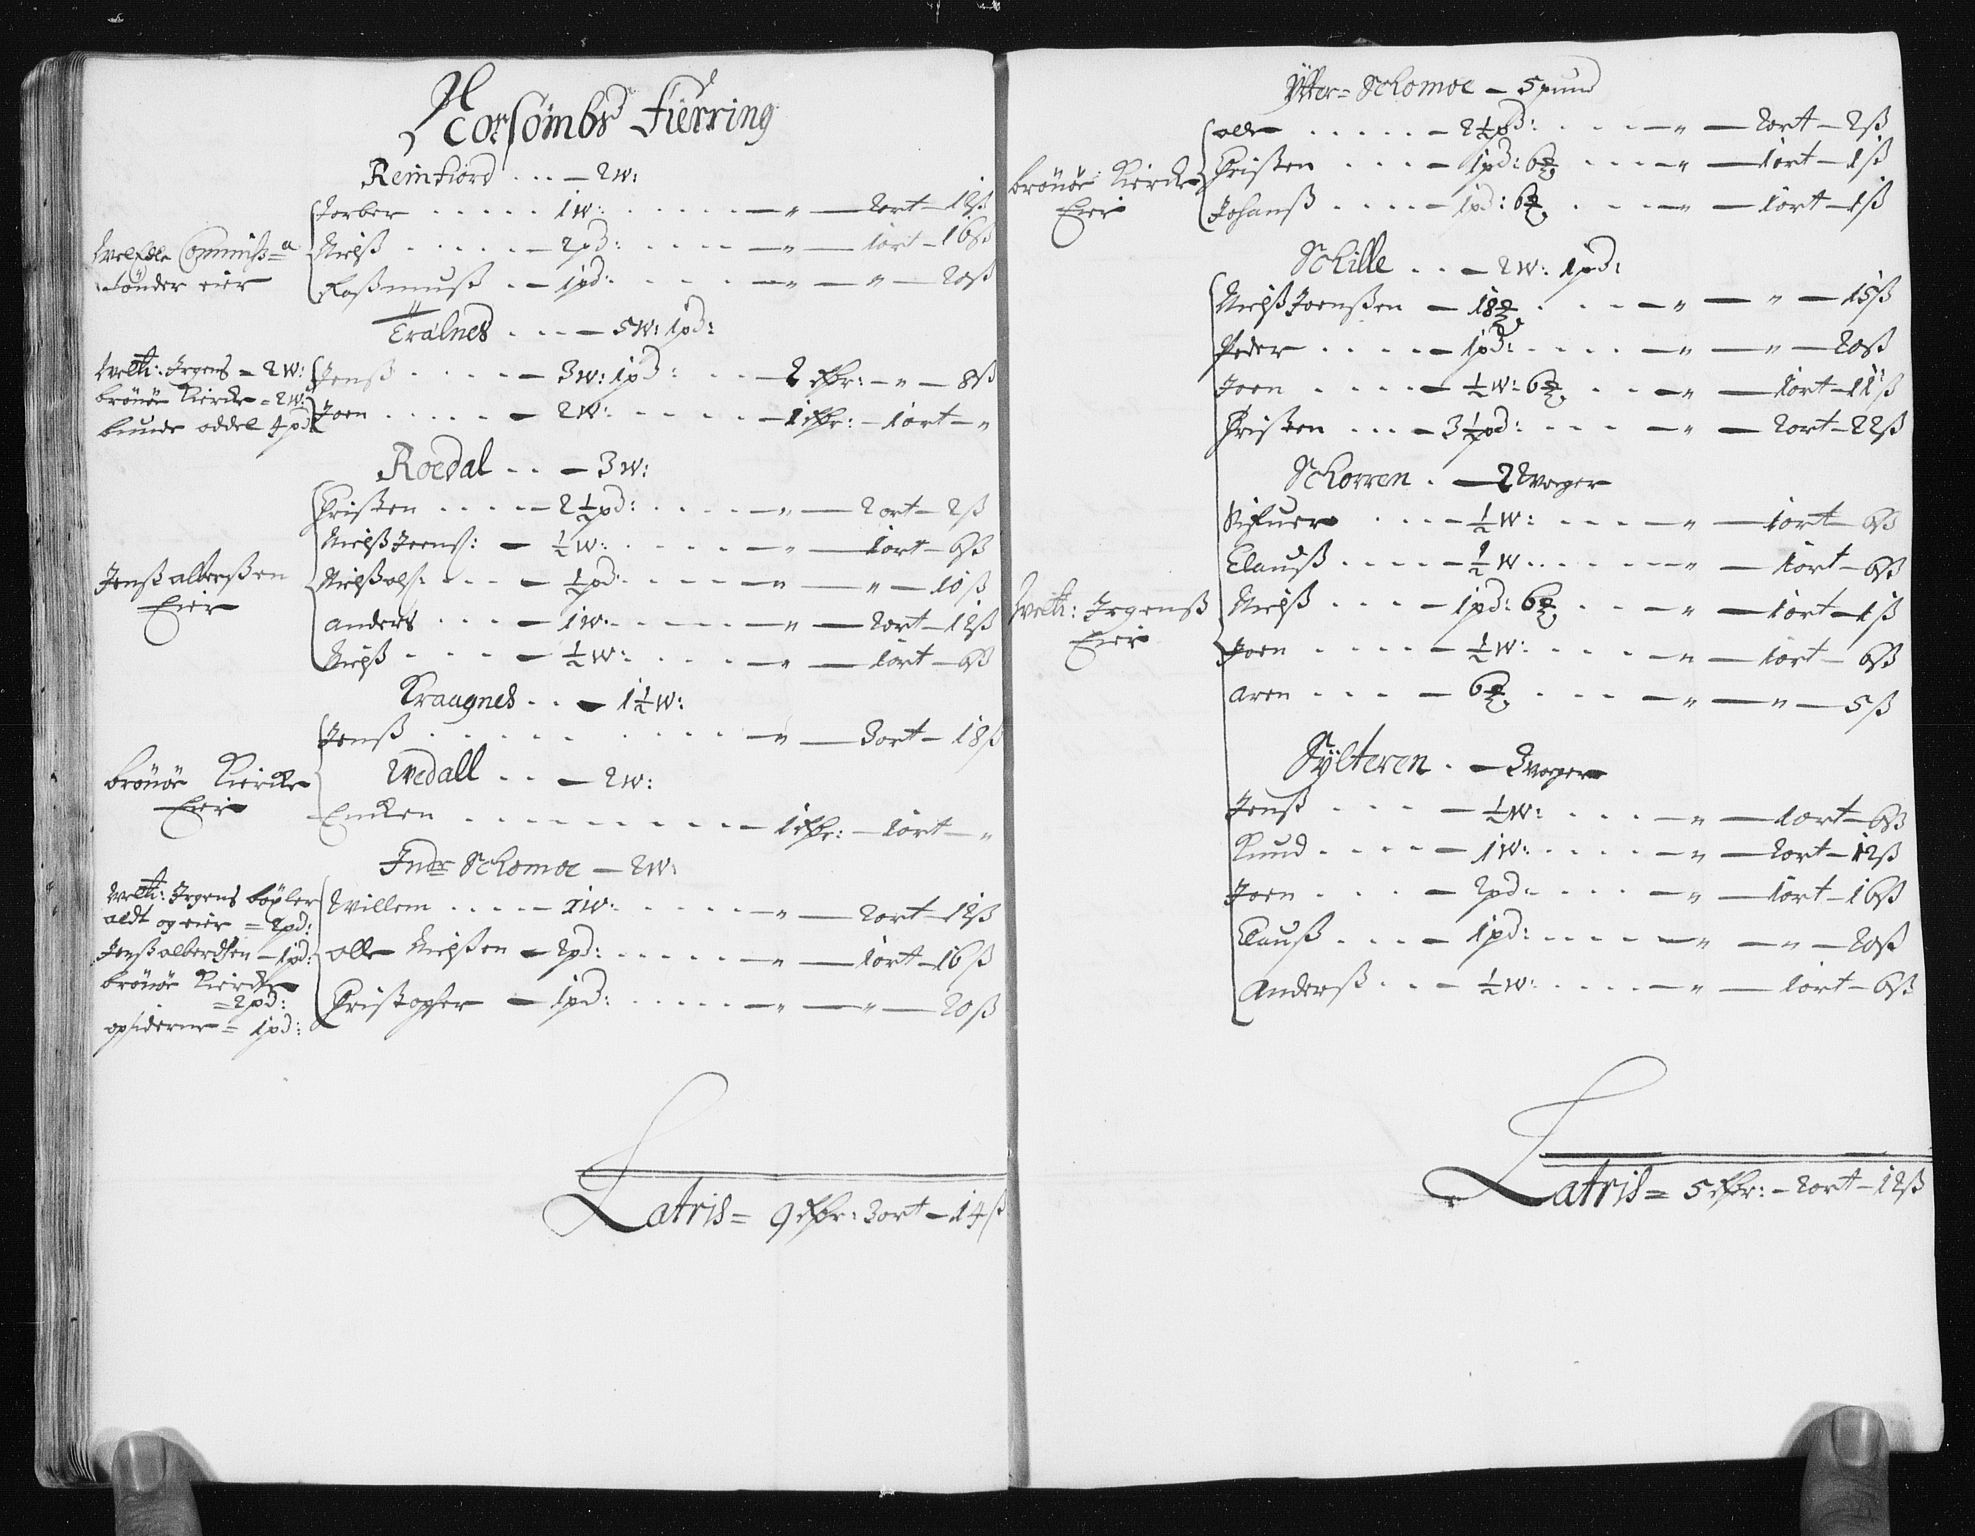 Horsømbs Fierring
Reinfiord . . . — 2 W:
Torber . . . . . 1 W: . . . . — „ — 2 ort — 12 ß
Nielß . . . . — 2 pd: . . . . — „ — 1 ort — 16 ß
Raßmuß . . — 1 pd: . . . . — „ — „ — 20 ß
Welædle Commiß:
Tønder eier
Tralnes . . . — 5 W: 1 pd:
Jenß . . . . — 3 W: 1 pd: . . — 2 rdr: — „ — 8 ß
Joen . . . . . — 2 W: . . . . — 1 rdr: — 1 ort — „
Welti: Jrgens — 2 W:
brönöe Kierke = 2 W:
bunde oddel 4 pd:
Roedal . . — 3 W:
Christen . . . . — 2 ½ pd: . . . . — „ — 2 ort — 2 ß
Nielß Joens: — ½ W: . . . . — „ — 1 ort — 6 ß
Nielß ols: . . . — ½ pd: . . . . — „ — „ — 10 ß
anders . . . — 1 W: . . . . — „ — 2 ort — 12 ß
Nielß . . . . — ½ W: . . . . — „ — 1 ort — 6 ß
Jenß alberßen
Eier
Kraagnes . . — 1 ½ W:
Jenß . . . . . . . . . . — „ — 3 ort — 18 ß
Wedall . . — 2 W:
Emken . . . . . . . . . — 1 rdr: — 1 ort — „
brönöe Kiercke
Eier
Indr Schomoe — 2 W:
Willem . . . . — 1 W: . . . . — „ — 2 ort — 12 ß
olle Nielßen — 2 pd: . . . . — „ — 1 ort — 16 ß
Christopher — 1 pd: . . . . — „ — „ — 20 ß
Welti: Jrgens böxler
aldt og eier = 2 pd:
Jenß alberdsen — 1 pd:
brönöe Kiercke
= 2 pd:
opsiderne = 1 pd:
Latris = 9 rdr: 3 ort — 14 ß
Ytter = Schomoe — 5 pund
olle . . . . . — 2 ½ pd: . . . . — „ — 2 ort — 2 ß
Christen . . . — 1 pd: 6 . . . . — „ — 1 ort — 1 ß
Johanß . . . . — 1 pd: 6 . . . . — „ — 1 ort — 1 ß
brönöe Kiercke
Eier
Schille . . — 2 W: 1 pd:
Nielß Joenßen — 18 . . . . — „ — „ — 15 ß
Peder . . . . — 1 pd: . . . . — „ — „ — 20 ß
Joen . . . . — ½ W: 6 . . . — „ — 1 ort — 11 ß
Christen . . . — 3 ½ pd: . . . . — „ — 2 ort — 22 ß
Schorren . — 2 Woger
Sifuer . . . — ½ W: . . . . — „ — 1 ort — 6 ß
Clauß . . . . . — ½ W . . . . . — „ — 1 ort — 6 ß
Nielß . . . . — 1 pd: 6 . . . — „ — 1 ort — 1 ß
Joen . . . . — ½ W: . . . . — „ — 1 ort — 6 ß
aren . . . . — 6 . . . . — „ — „ — 5 ß
Welti: Jrgenß
Eier
Sÿlteren . — 3 Woger
Jenß . . . — ½ W: . . . . — „ — 1 ort — 6 ß
Knud . . . . — 1 W: . . . . — „ — 2 ort — 12 ß
Joen . . . . — 2 pd: . . . . — „ — 1 ort — 16 ß
Clauß . . . . — 1 pd: . . . . — „ — „ — 20 ß
Anderß . . . — ½ W: . . . . — „ — 1 ort — 6 ß
Latris = 5 rdr: — 2 ort — 12 ß